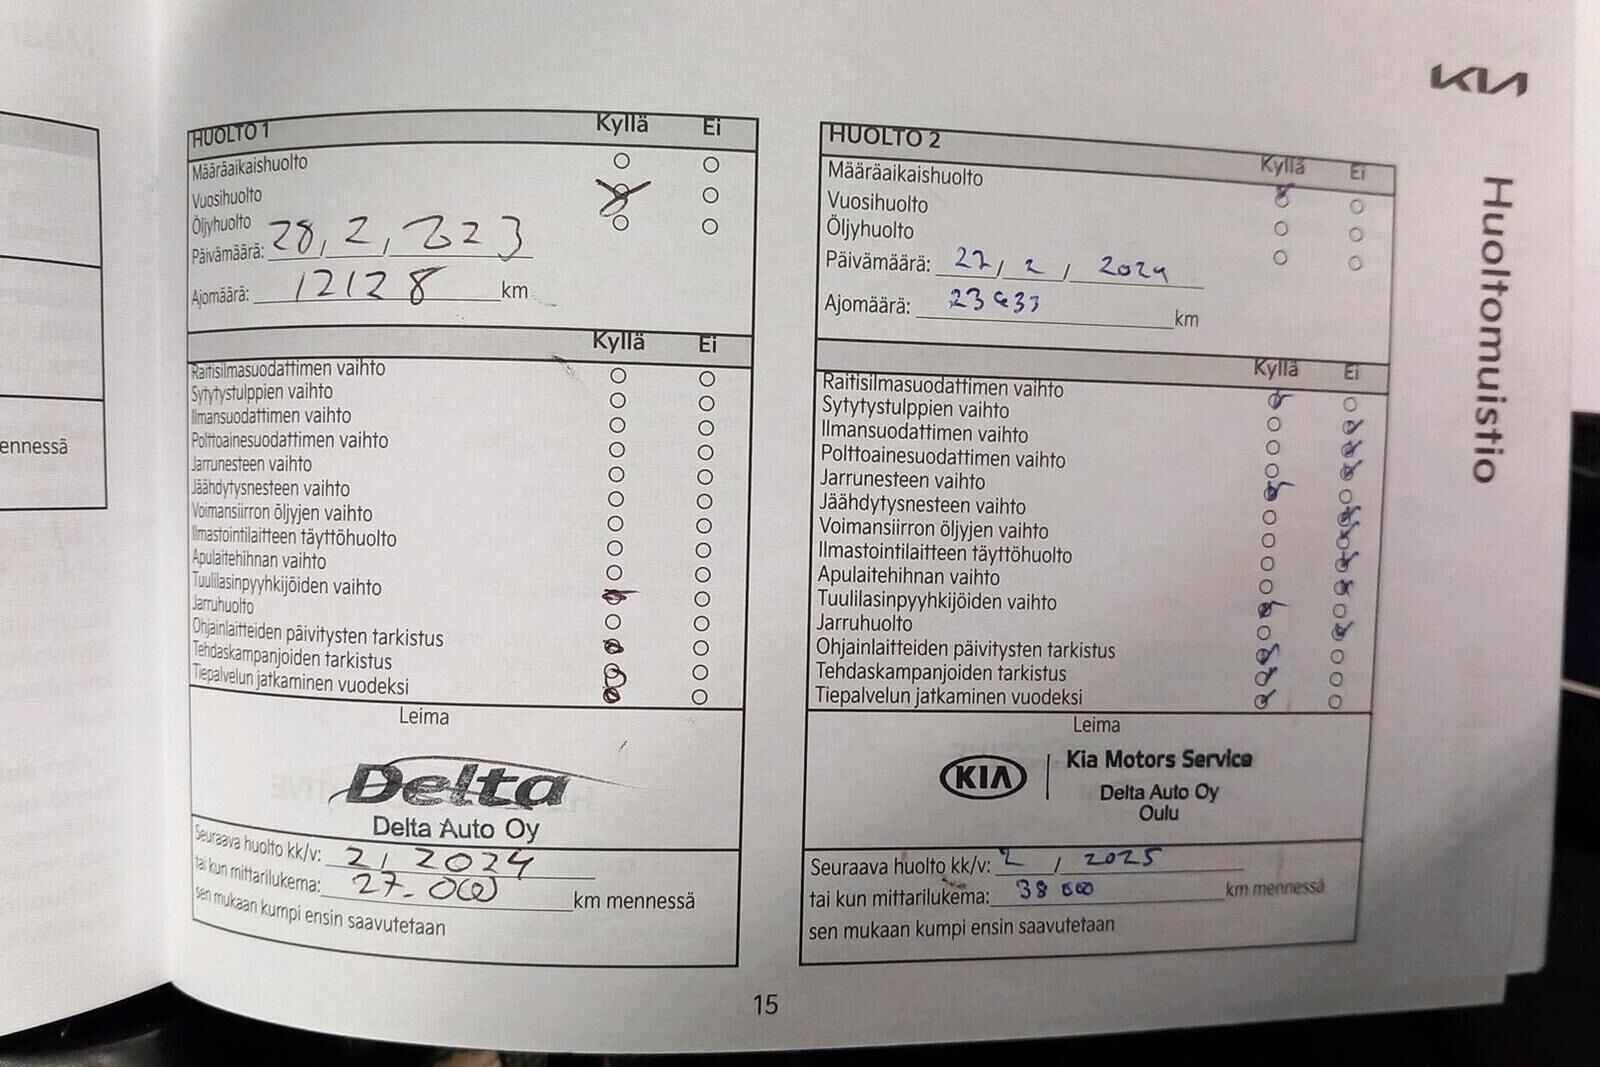 KIA
Huoltomuistio
mennessä
HUOLTO 1 Kyllä Ei
Määräaikaishuolto
Vuosihuolto
Öljyhuolto
Päivämäärä: 28, 2, 2023
Ajomäärä: 12128 km
Kyllä Ei
Raitisilmasuodattimen vaihto
Sytytystulppien vaihto
Ilmansuodattimen vaihto
Polttoainesuodattimen vaihto
Jarrunesteen vaihto
Jäähdytysnesteen vaihto
Voimansiirron öljyjen vaihto
Ilmastointilaitteen täyttöhuolto
Apulaitehihnan vaihto
Tuulilasinpyyhkijöiden vaihto
Jarruhuolto
Ohjainlaitteiden päivitysten tarkistus
Tehdaskampanjoiden tarkistus
Tiepalvelun jatkaminen vuodeksi
Leima
Delta
Delta Auto Oy
Seuraava huolto kk/v: 2 / 2024
tai kun mittarilukema: 27-000 km mennessä
sen mukaan kumpi ensin saavutetaan
HUOLTO 2 Kyllä Ei
Määräaikaishuolto
Vuosihuolto
Öljyhuolto
Päivämäärä: 27 / 2 / 2024
Ajomäärä: km
Kyllä Ei
Raitisilmasuodattimen vaihto
Sytytystulppien vaihto
Ilmansuodattimen vaihto
Polttoainesuodattimen vaihto
Jarrunesteen vaihto
Jäähdytysnesteen vaihto
Voimansiirron öljyjen vaihto
Ilmastointilaitteen täyttöhuolto
Apulaitehihnan vaihto
Tuulilasinpyyhkijöiden vaihto
Jarruhuolto
Ohjainlaitteiden päivitysten tarkistus
Tehdaskampanjoiden tarkistus
Tiepalvelun jatkaminen vuodeksi
Leima
KIA Kia Motors Service
Delta Auto Oy
Oulu
Seuraava huolto kk/v: 2 / 2025
tai kun mittarilukema: 38 000 km mennessä
sen mukaan kumpi ensin saavutetaan
15